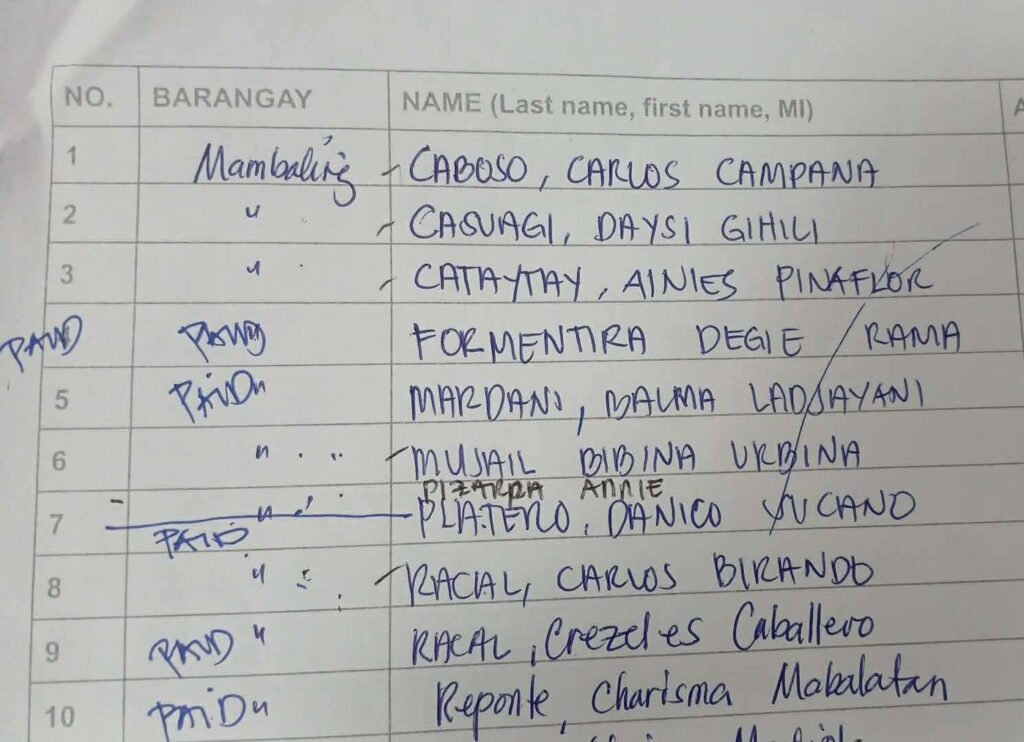 NO. BARANGAY NAME (Last name, first name, MI) A
1 Mambaling CABOSO, CARLOS CAMPANA
2 " CASUAGI, DAYSI GIHILI
3 " CATAYTAY, AINIES PINAFLOR
PAID PAID FORMENTIRA DEGIE RAMA
5 PAID " MARDANI, BALMA LADJAYANI
6 " MUJAIL BIBINA URBINA
PIZARRA ANNIE
7 " PLATERO, DANICO YUCANO
PAID
8 " RACAL, CARLOS BIRANDO
9 PAID " RACAL, Crezeles Caballero
10 PAID " Reponte, Charisma Mabalatan